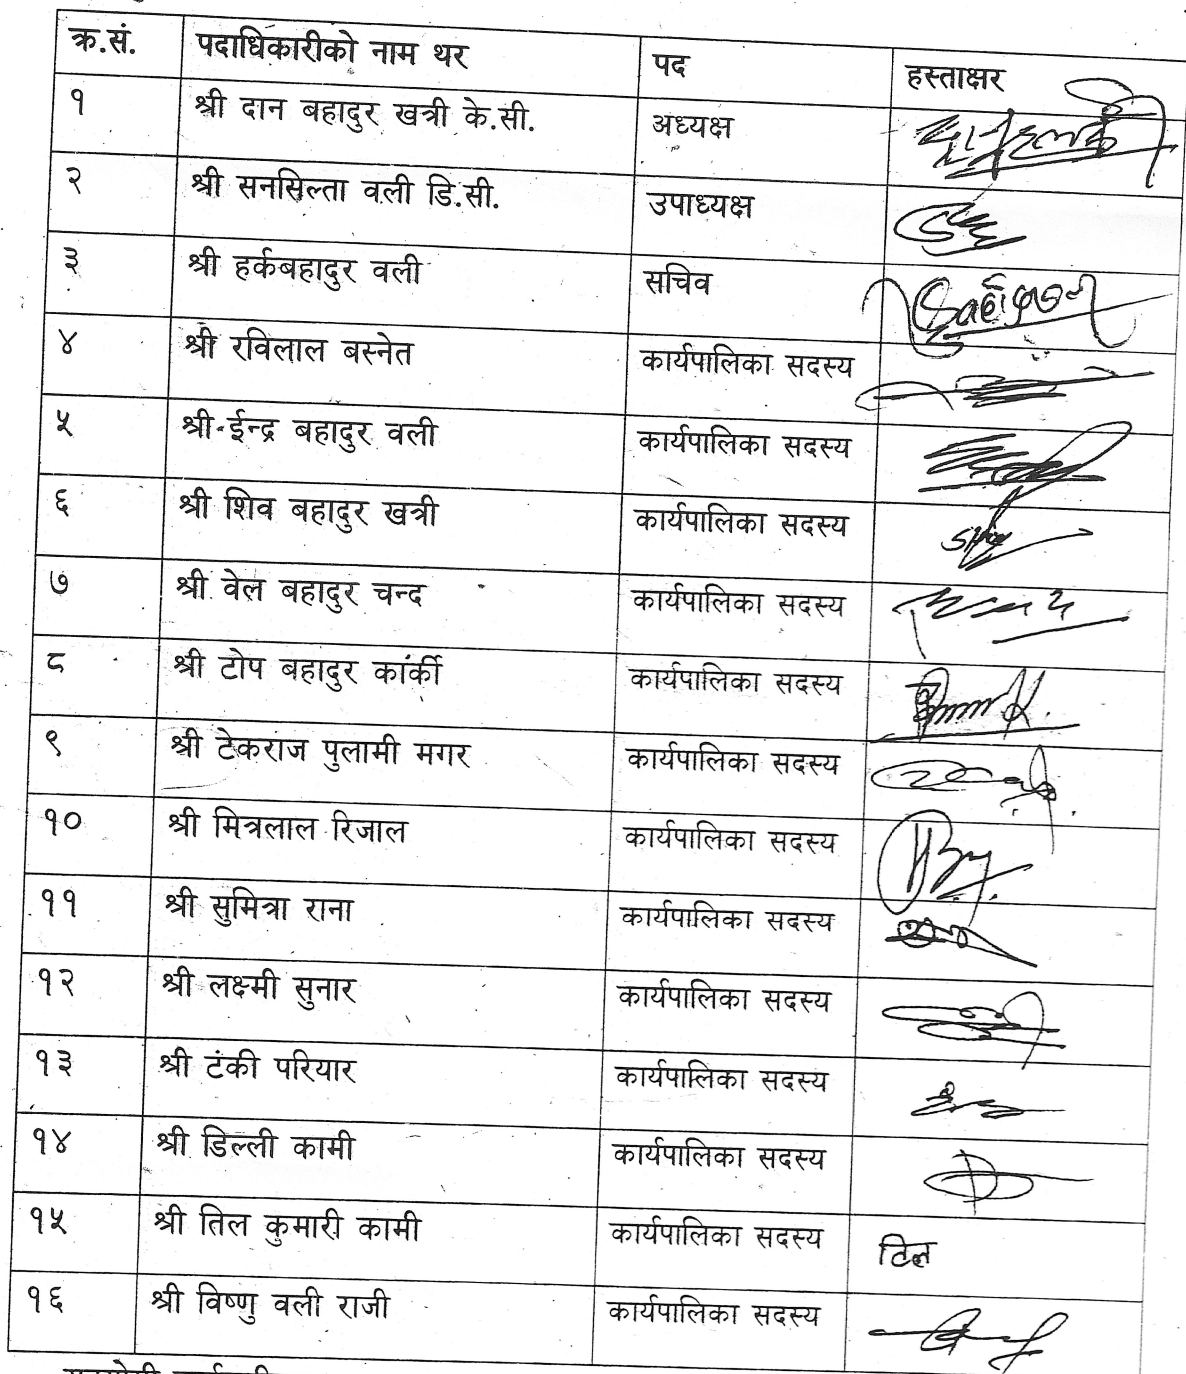 क्र.सं. पदाधिकारीको नाम थर पद हस्ताक्षर
१ श्री दान बहादुर खत्री के.सी. अध्यक्ष
२ श्री सनसिल्ता वली डि.सी. उपाध्यक्ष
३ श्री हर्कबहादुर वली सचिव
४ श्री रविलाल बस्नेत कार्यपालिका सदस्य
५ श्री ईन्द्र बहादुर वली कार्यपालिका सदस्य
६ श्री शिव बहादुर खत्री कार्यपालिका सदस्य
७ श्री वेल बहादुर चन्द कार्यपालिका सदस्य
८ श्री टोप बहादुर कार्की कार्यपालिका सदस्य
९ श्री टेकराज पुलामी मगर कार्यपालिका सदस्य
१० श्री मित्रलाल रिजाल कार्यपालिका सदस्य
११ श्री सुमित्रा राना कार्यपालिका सदस्य
१२ श्री लक्ष्मी सुनार कार्यपालिका सदस्य
१३ श्री टंकी परियार कार्यपालिका सदस्य
१४ श्री डिल्ली कामी कार्यपालिका सदस्य
१५ श्री तिल कुमारी कामी कार्यपालिका सदस्य टिल
१६ श्री विष्णु वली राजी कार्यपालिका सदस्य